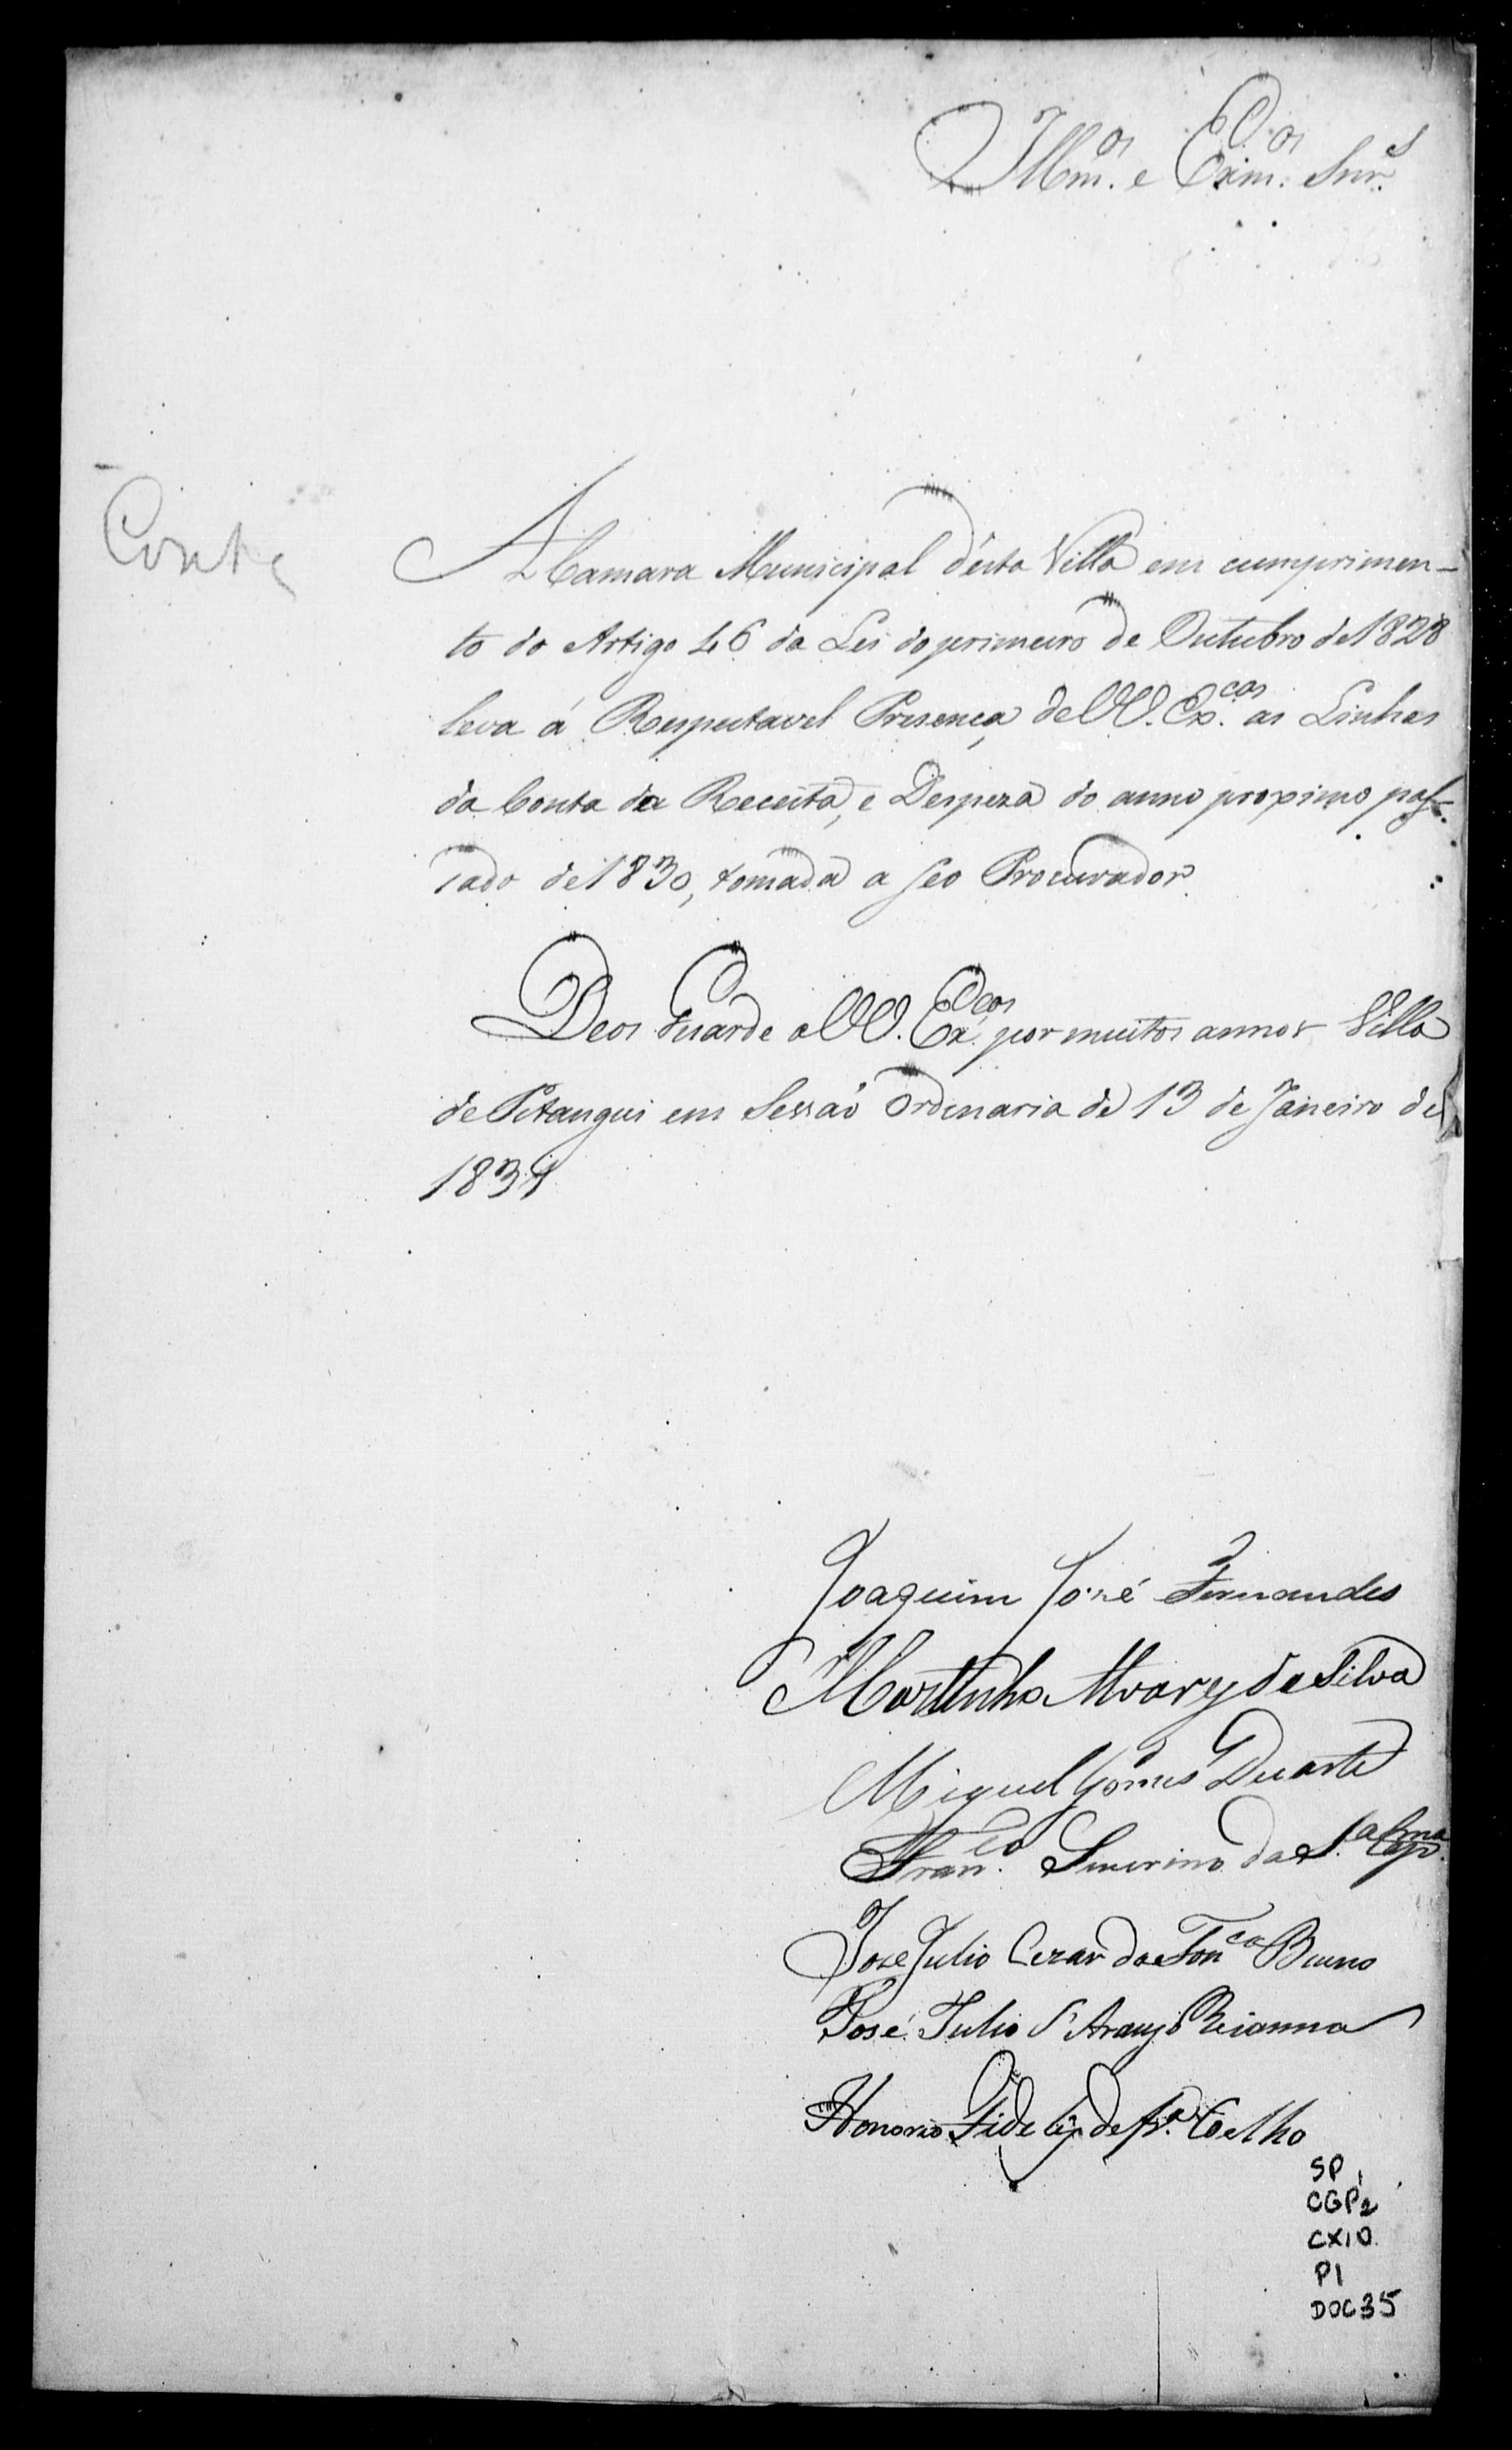 Illm.os e Exm.os Snr.s
Conta
A Camara Municipal d'esta Villa em cumprimen-
to do Artigo 46 da Lei do primeiro de Outubro de 1828
leva á Respeitavel Presença de VV. Ex.cas as Linhas
da Conta da Receita, e Despeza do anno proximo pas-
sado de 1830, tomada a seo Procurador.
Deos Guarde a VV. Ex.cas por muitos annos Villa
de Pitangui em Sessão Ordenaria de 13 de Janeiro de
1831
Joaquim José Fernandes
Martinho Alvarez da Silva
Miguel Gomes Duarte
Fran.co da S.a
José Julio Cezar da Fon.ca Bueno
José Julio d'Araujo Vianna
Honorio Fidelis de Coelho
SP 1
CGP2
CX10
P1
DOC35